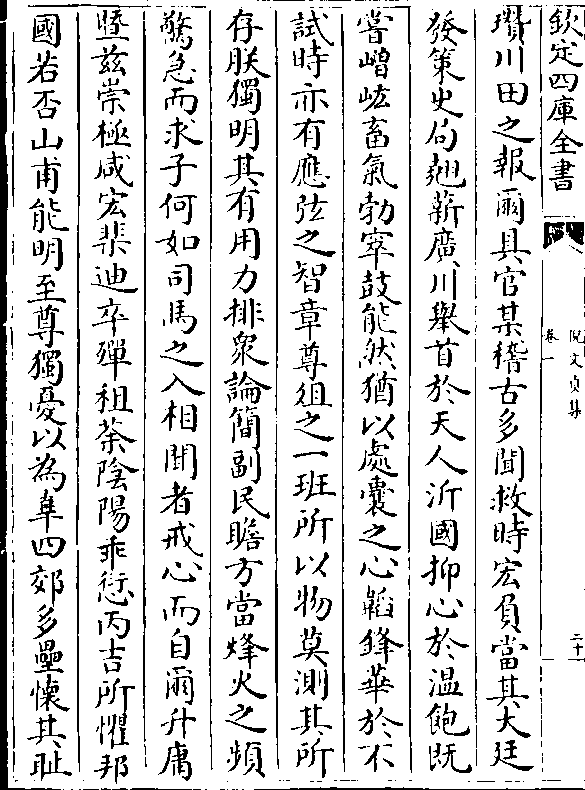 欽定四庫全書
倪文貞集
卷一
二十一
瓚川田之報爾具官某稽古多聞救時宏負當其大廷
發策史局翹薪廣川舉首於天人沂國抑心於溫飽既
嘗嶒峵畜氣勃窣鼓能然猶以處囊之心韜鋒華於不
試時亦有應弦之智章尊俎之一班所以物莫測其所
存朕獨明其有用力排衆論簡副民瞻方當烽火之頻
驚急而求子何如司馬之入相聞者戒心而自爾升庸
曁兹崇極咸宏棐迪卒殫租荼陰陽乖愆丙吉所懼邦
國若否山甫能明至尊獨憂以為卑四郊多壘懐其耻